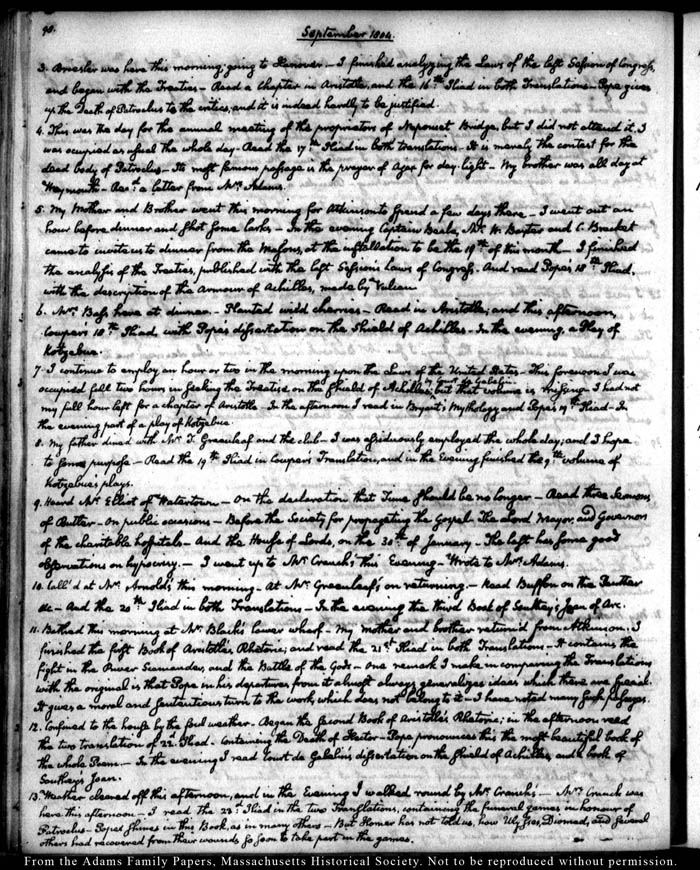 90.
September 1804.
3. Bressler was here this morning; going to Hanover. — I finished analyzing the Laws of the last Session of Congress,
and began with the Treaties — Read a Chapter in Aristotle, and the 16th Iliad in both Translations — Pope gives
up the Death of Patroclus to the critics, and it is indeed hardly to be justified.
4. This was the day for the annual meeting of the proprietors of Neponset Bridge, but I did not attend it. I
was occupied as usual the whole day — Read the 17th Iliad in both translations — It is merely the contest for the
dead body of Patroclus — Its most famous passage is the prayer of Ajax for day-light — My brother was all day at
Weymouth — Recd a letter from Mrs Adams.
5. My Mother and Brother went this morning for Atkinson to spend a few days there — I went out an
hour before dinner and shot some larks — In the evening Captain Beale, Mr. W. Baxter and C. Brackett
came to invite us to dinner from the Masons, at the installation to be the 19th of this month. I finished
the analysis of the Treaties, published with the last Session's Laws of Congress. And read Pope's 18th Iliad,
with the description of the Armour of Achilles, made by Vulcan.
6. Mrs. Bass here at dinner — Planted wild cherries — Read in Aristotle; and this afternoon,
Cowper's 18th Iliad, with Pope's dissertation on the Shield of Achilles — In the evening, a Play of
Kotzebue.
7. I continue to employ an hour or two in the morning upon the Laws of the United States — This forenoon I was
occupied full two hours in seeking the Treatise on the Shield of Achilles, by Court de Gebelin, but that volume is missing. I had not
my full hour left for a chapter of Aristotle — In the afternoon I read in Bryant's Mythology and Pope's 19th Iliad — In
the evening part of a play of Kotzebue.
8. My father dined with Mr. T. Greenleaf and the club — I was assiduously employed the whole day; and I hope
to some purpose. — Read the 19th Iliad in Cowper's Translation, and in the Evening finished the 9th volume of
Kotzebue's plays.
9. Heard Mr. Elliot of Watertown — On the declaration that Time should be no longer — Read three Sermons
of Butler — On public occasions — Before the Society for propagating the Gospel — The Lord Mayor, and Governors
of the charitable hospitals — And the House of Lords, on the 30th of January. The last has some good
observations on hypocrisy. — I went up to Mr. Cranch's this Evening — Wrote to Mrs. Adams.
10. Call'd at Mr. Arnold's this morning — At Mr. Greenleaf's on returning. — Read Buffon on the Panther
&c — And the 20th Iliad in both Translations — In the evening the third Book of Southey's Joan of Arc.
11. Bathed this morning at Mr. Black's lower wharf — My mother and brother return'd from Atkinson. I
finished the first Book of Aristotle's Rhetoric; and read the 21st Iliad in both Translations — It contains the
fight in the River Scamander, and the Battle of the Gods — One remark I make in comparing the Translations
with the original is that Pope in his departures from it almost always generalizes ideas which there are special.
It gives a moral and sententious turn to the work, which does not belong to it — I have noted many such passages.
12. Confined to the house by the foul weather. Began the Second Book of Aristotle's Rhetoric; in the afternoon read
the two translation of 22d Iliad. Containing the Death of Hector — Pope pronounces this the most beautiful book of
the whole Poem. — In the evening I read Court de Gebelin's dissertation on the Shield of Achilles, and a book of
Southey's Joan.
13. Weather cleared off this afternoon, and in the Evening I walked round by Mr. Cranch's — Mrs. Cranch was
here this afternoon — I read the 23d Iliad in the two Translations, containing the funeral games in honour of
Patroclus — Pope shines in this Book, as in many others — But Homer has not told us, how Ulysses, Diomed, and several
others had recovered from their wounds so soon to take part in the games.
From the Adams Family Papers, Massachusetts Historical Society. Not to be reproduced without permission.